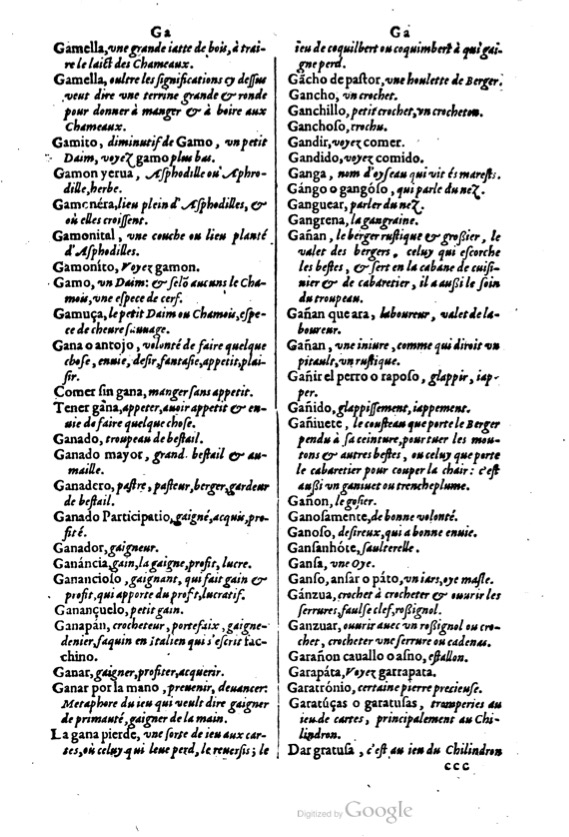 Ga
Gamella, vne grande iatte de bois, à trai-
re le laict des Chameaux.
Gamella, oultre les significations cy dessus
veut dire vne terrine grande & ronde
pour donner à manger & à boire aux
Chameaux.
Gamito, diminutif de Gamo, vn petit
Daim, voyez gamo plus bas.
Gamon yerua, Asphodille ou Aphro-
dille, herbe.
Gamonéra, lieu plein d'Asphodilles, &
où elles croissent.
Gamonital, vne couche ou lieu planté
d'Asphodilles.
Gamoníto, Voyez gamon.
Gamo, vn Daim: & selõ aucuns le Cha-
mois, vne espece de cerf.
Gamuça, le petit Daim ou Chamois, espe-
ce de cheure sauuage.
Gana o antojo, volonté de faire quelque
chose, enuie, desir, fantasie, appetit, plai-
sir.
Comer sin gana, manger sans appetit.
Tener gàna, appeter, auoir appetit & en-
uie de faire quelque chose.
Ganado, troupeau de bestail.
Ganado mayor, grand bestail & au-
maille.
Ganadero, pastre, pasteur, berger, gardeur
de bestail.
Ganado Participatio, gaigné, acquis, pro-
fité.
Ganador, gaigneur.
Ganáncia, gain, la gaigne, profit, lucre.
Gananciolo, gaignant, qui fait gain &
profit, qui apporte du profit, lucratif.
Ganançuelo, petit gain.
Ganapán, crocheteur, portefaix, gaigne-
denier, faquin en italien qui s'escrit fac-
chino.
Ganar, gaigner, profiter, acquerir.
Ganar por la mano, preuenir, deuancer:
Metaphore du ieu qui veult dire gaigner
de primauté, gaigner de la main.
La gana pierde, vne sorte de ieu aux car-
tes, où celuy qui leue perd, le reuersis; le
Ga
ieu de coquilbert ou coquimbert à qui gai-
gne perd.
Gácho de pastor, vne houlette de Berger.
Gancho, vn crochet.
Ganchillo, petit crochet, vn crocheton.
Ganchoso, trochu.
Gandir, voyez comer.
Gandido, voyez comido.
Ganga, nom d'oyseau qui vit és marests.
Gángo o gangóso, qui parle du nez.
Ganguear, parler du nez.
Gangrena, la gangraine.
Gañan, le berger rustique & grossier, le
valet des bergers, celuy qui escorche
les bestes, & sert en la cabane de cuisi-
nier & de cabaretier, il a aussi le soin
du troupeau.
Gañan que ara, laboureur, valet de la-
boureur.
Gañan, vne iniure, comme qui diroit vn
pitault, vn rustique.
Gañir el perro o raposo, glappir, iap-
per.
Gañido, glappissement, iappement.
Gañiuete, le cousteau que porte le Berger
pendu à sa ceinture, pour tuer les mou-
tons & autres bestes, ou celuy que porte
le cabaretier pour couper la chair: c'est
aussi vn ganiuet ou trencheplume.
Gañon, le gosier.
Ganosamente, de bonne volonté.
Ganoso, desireux, qui a bonne enuie.
Gansanhóte, saulterelle.
Gansa, vne Oye.
Ganso, ansar o páto, vn iars, oye masle.
Gánzua, crochet à crocheter & ouurir les
serrures, faulse clef, rossignol.
Ganzuar, ouurir auec vn rossignol ou cro-
chet, crocheter vne serrure ou cadenas.
Garañon cauallo o asno, estallon.
Garapáta, Voyez garrapata.
Garatrónio, certaine pierre precieuse.
Garatúças o garatusas, tromperies au
ieu de cartes, principalement au Chi-
lindron.
Dar gratusa, c'est au ieu du Chilindron
ccc
Digitized by Google